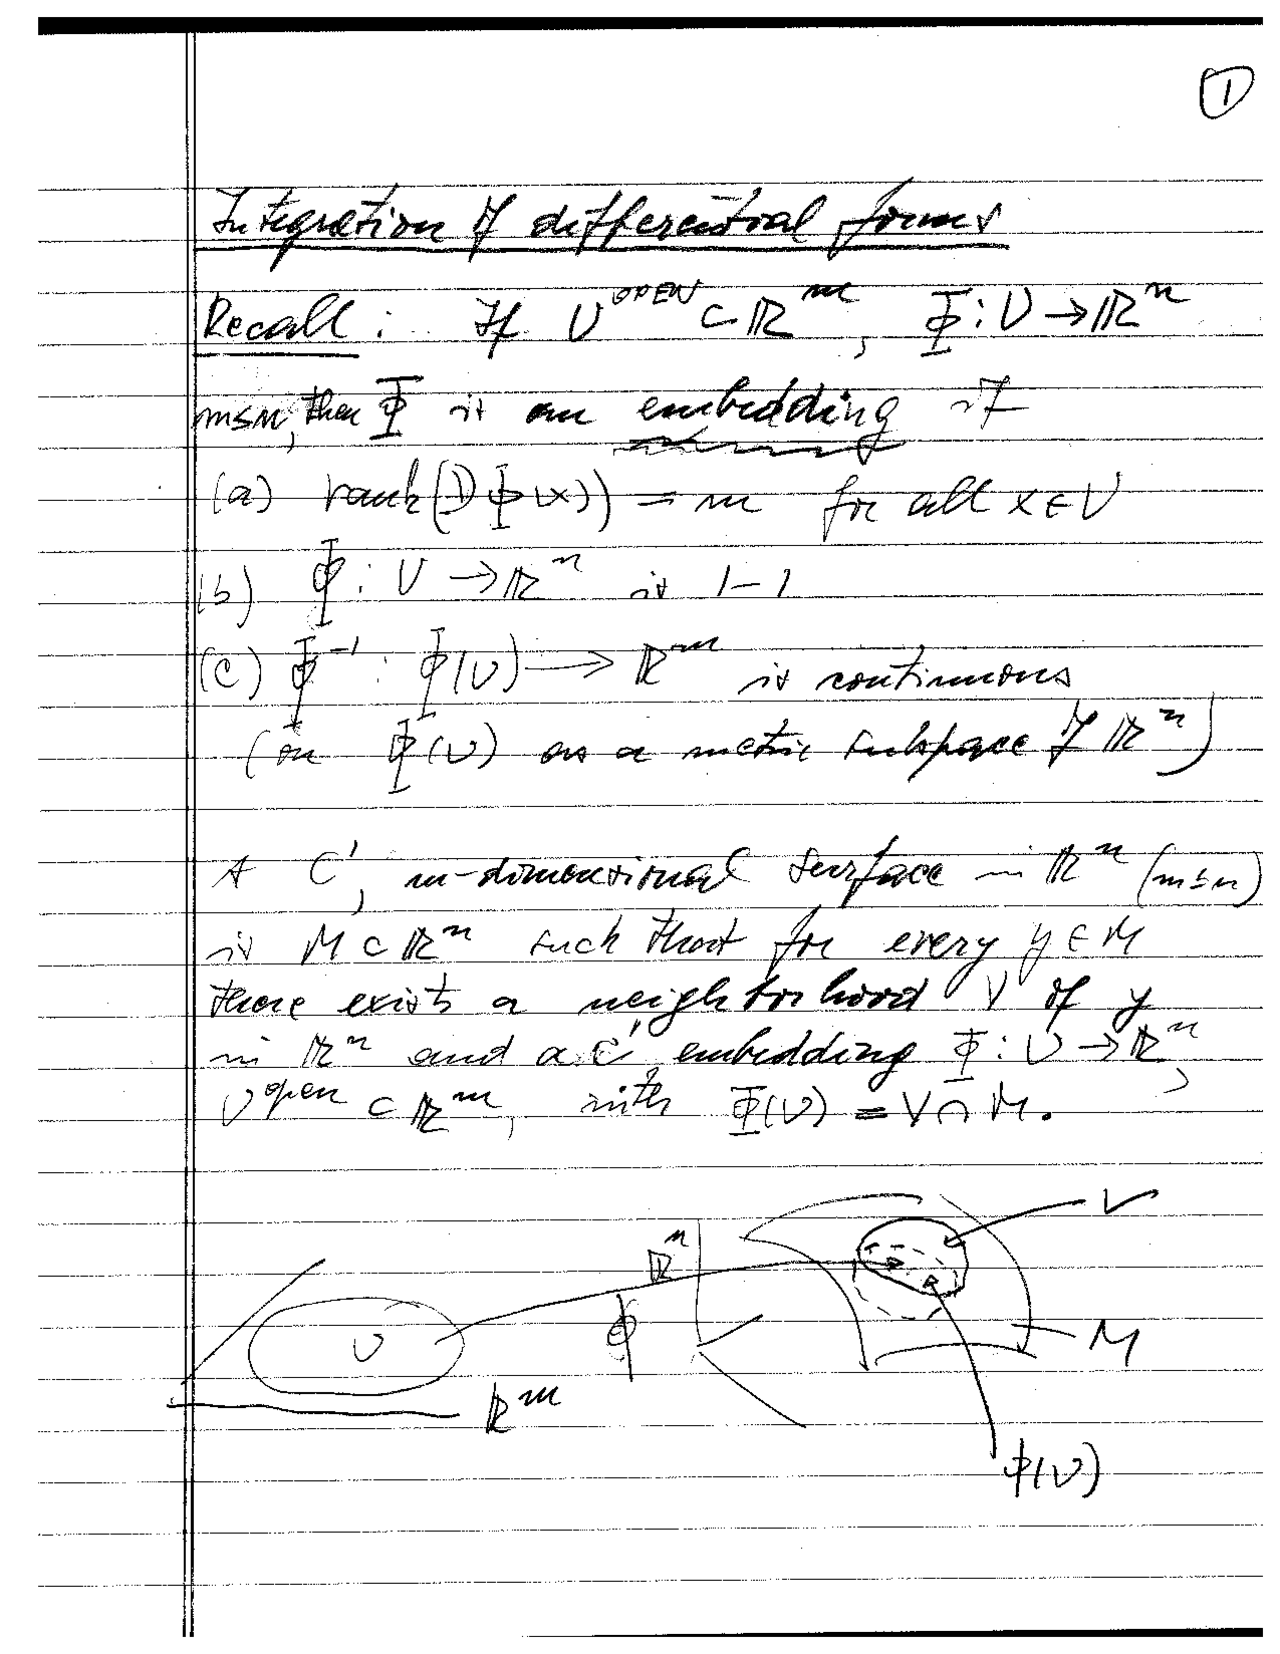 ①
Integration of differential forms
Recall: If U^OPEN ⊂ ℝ^m, Φ: U → ℝ^n
m≤n, then Φ is an embedding if
(a) rank(DΦ(x)) = m for all x ∈ U
(b) Φ: U → ℝ^n is 1-1
(c) Φ^-1 : Φ(U) → ℝ^m is continuous
(on Φ(U) as a metric subspace of ℝ^n)
A C^1, m-dimensional surface in ℝ^n (m≤n)
is M ⊂ ℝ^n such that for every y ∈ M
there exists a neighborhood V of y
in ℝ^n and a C^1 embedding Φ: U → ℝ^n,
U^open ⊂ ℝ^m, with Φ(U) = V ∩ M.
V
ℝ^n
U
Φ
M
ℝ^m
Φ(U)